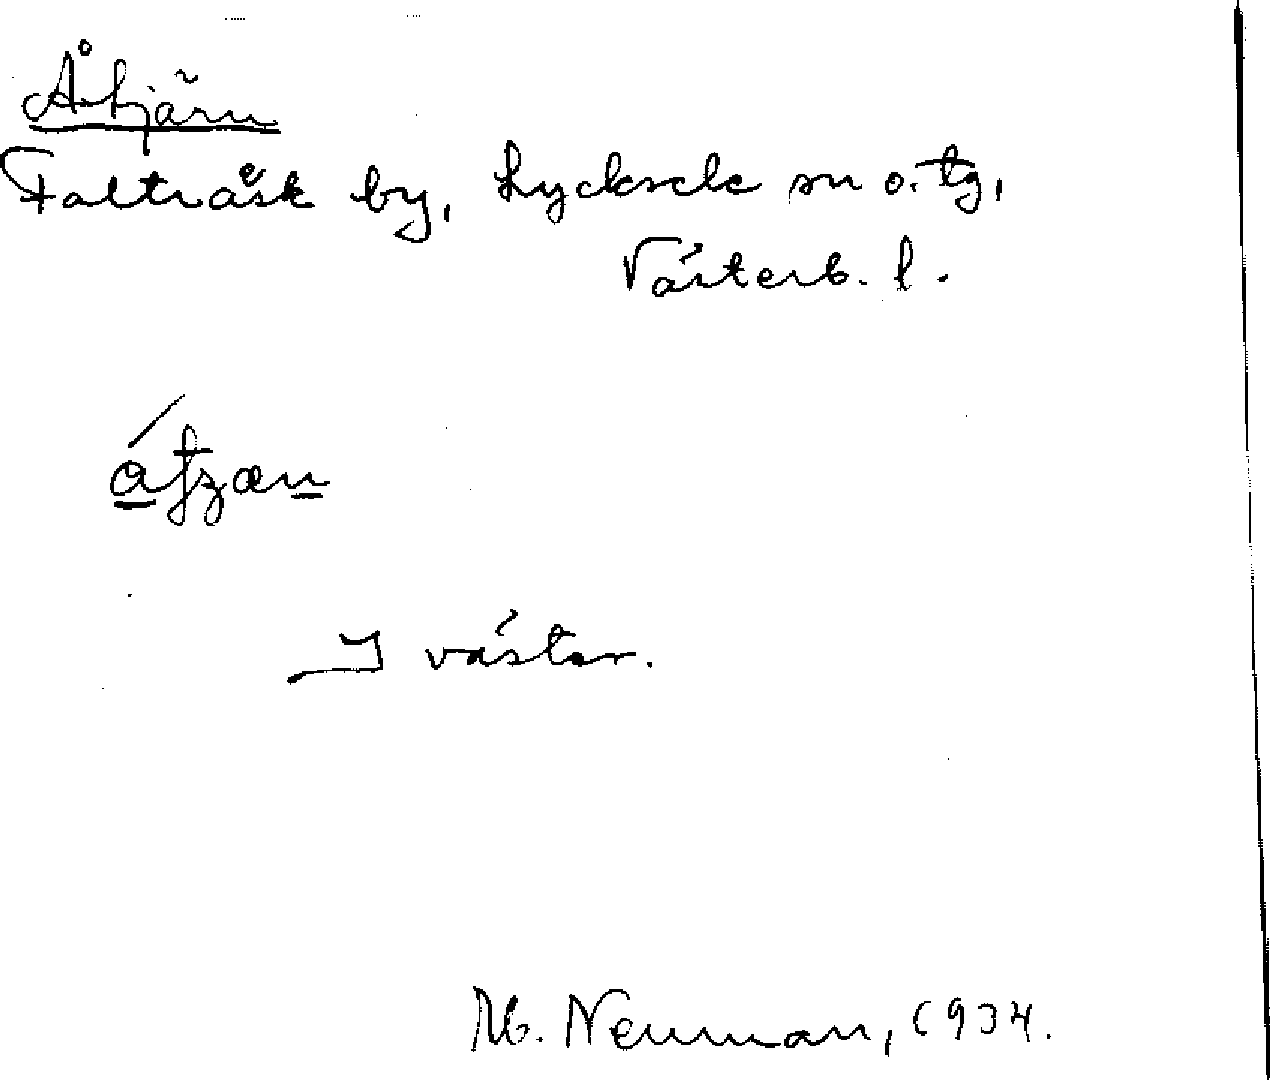 Åtjärn
Falträsk by, Lycksele sn o. tg,
Västerb. l.
I väster.
M. Neuman, 1934.